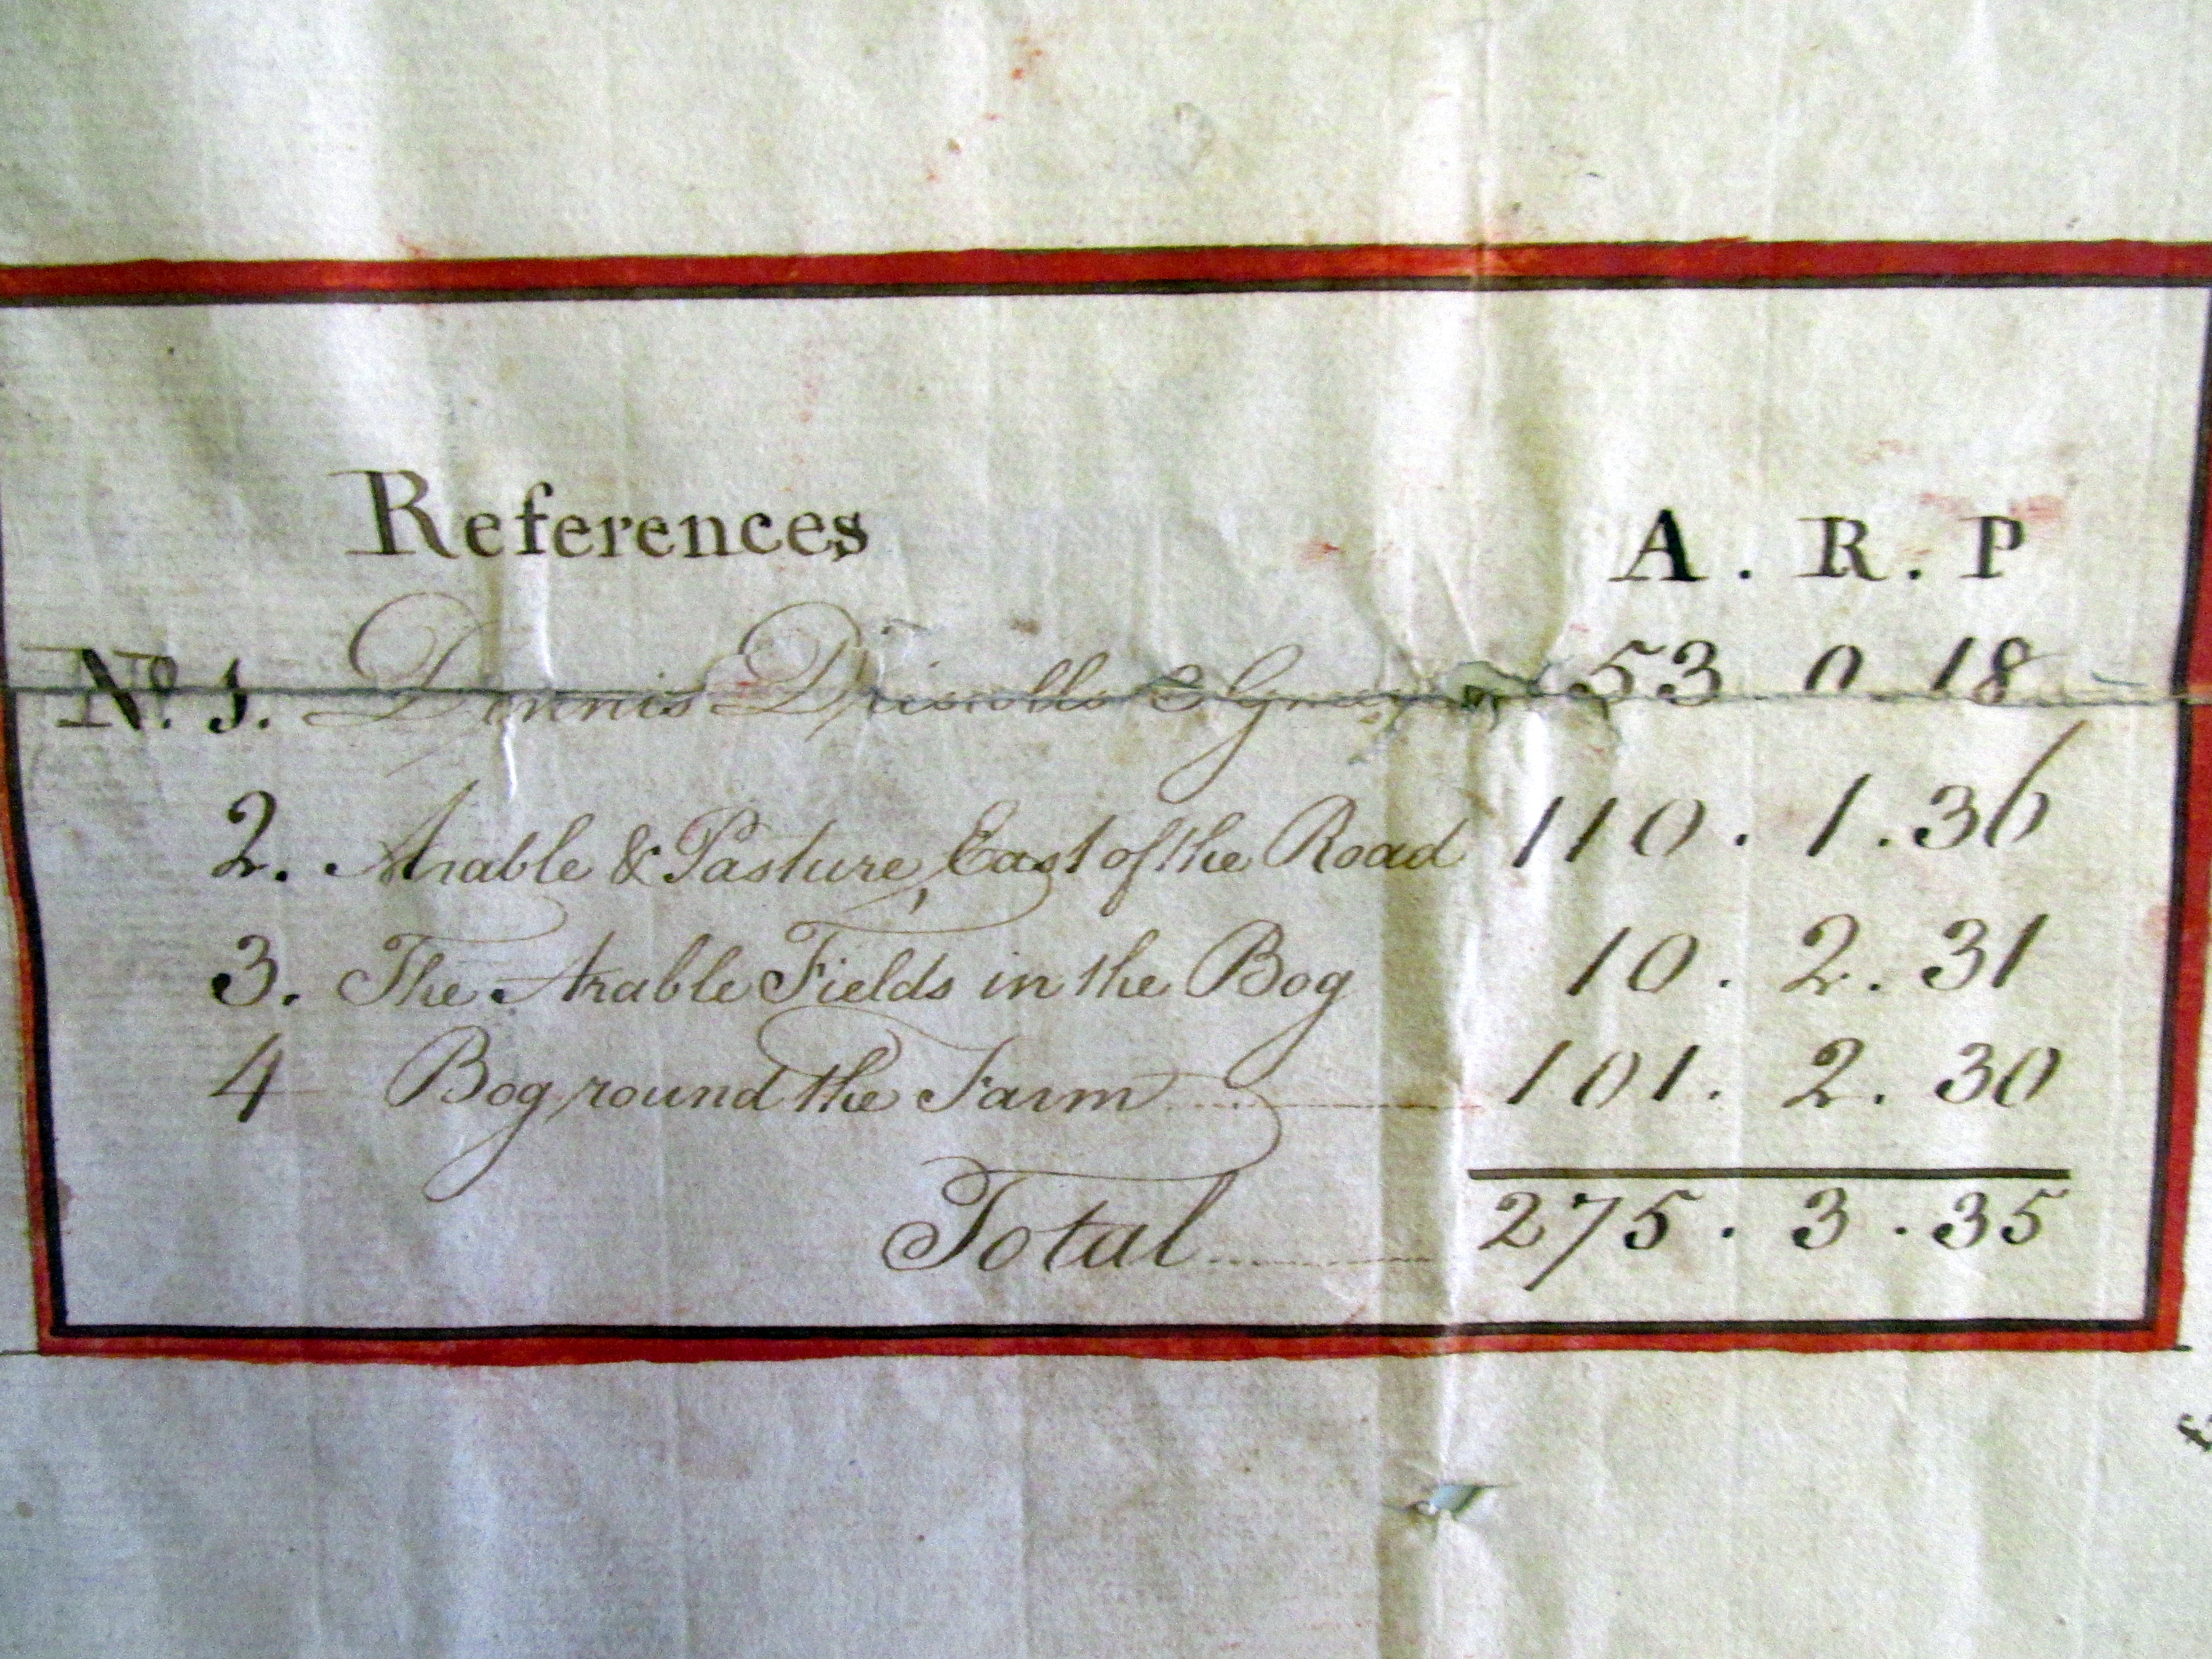 References A. R. P
No. 1. Dennis Driscolls 53 0 18
2. Arable & Pasture, East of the Road 110. 1. 36
3. The Arable Fields in the Bog 10. 2. 31
4 Bog round the Farm 101. 2. 30
Total 275. 3. 35